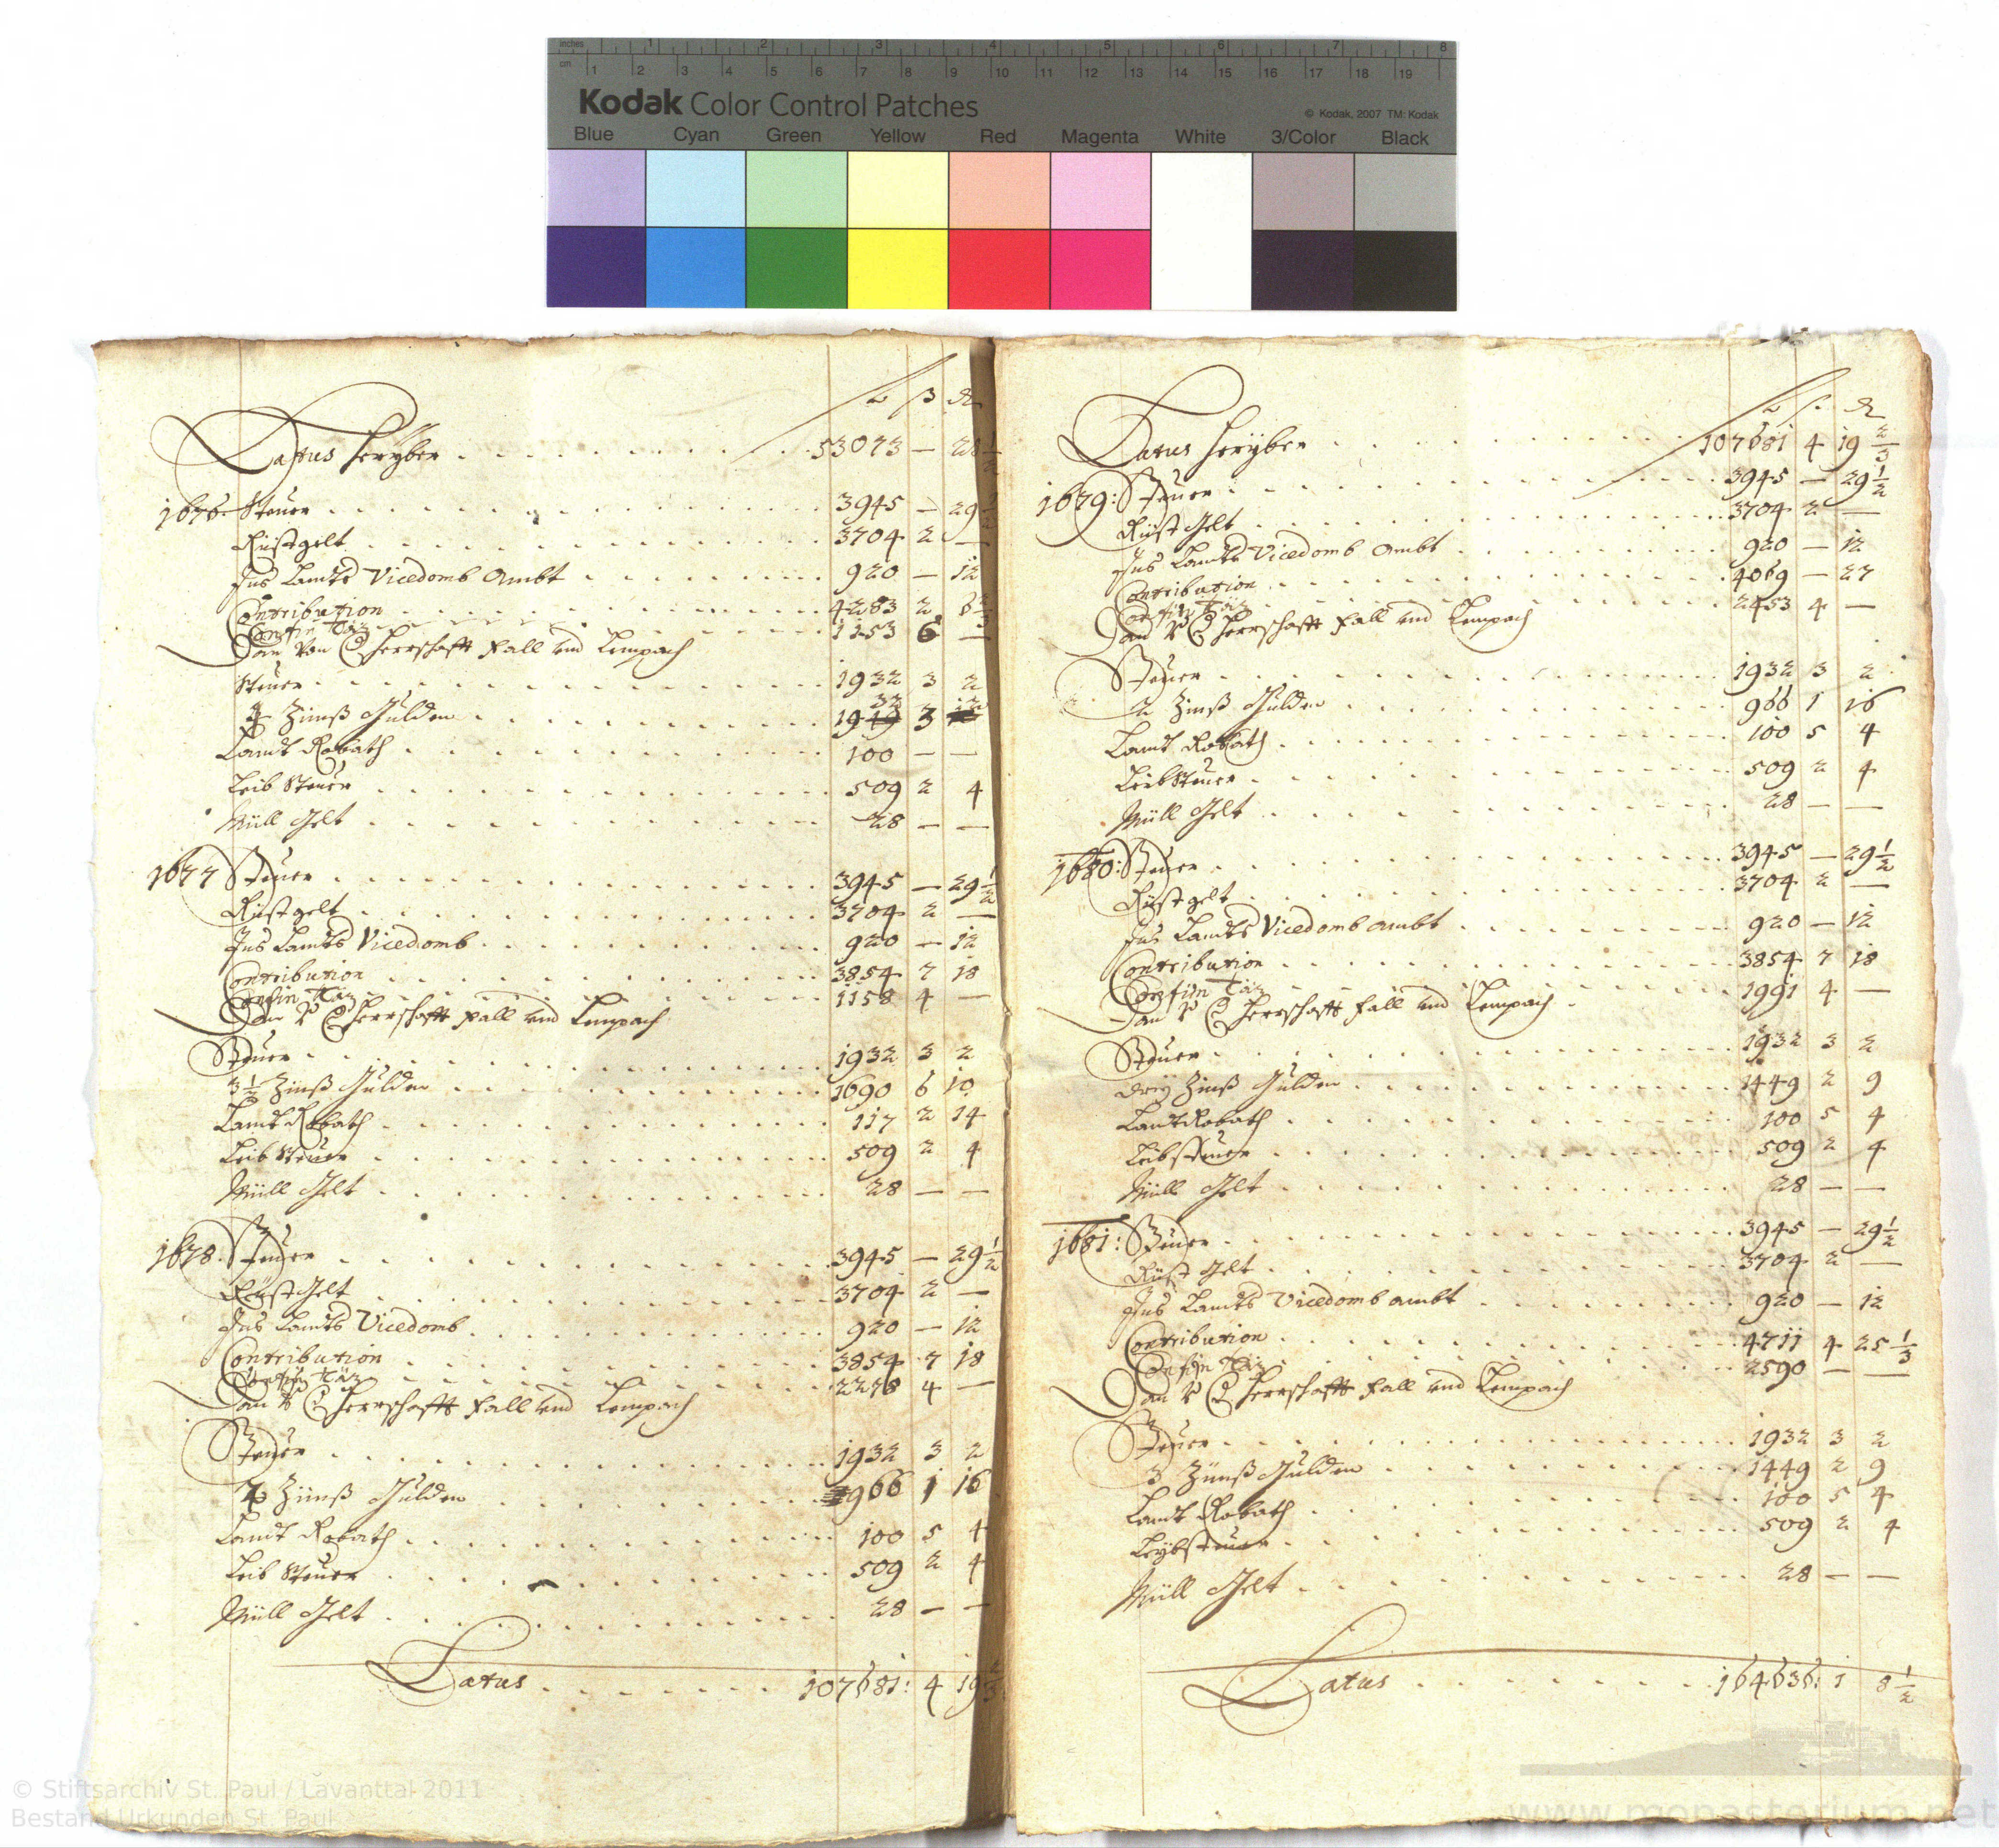 inches 1 2 3 4 5 6 7 8
cm 1 2 3 4 5 6 7 8 9 10 11 12 13 14 15 16 17 18 19
Kodak Color Control Patches
© Kodak, 2007 TM: Kodak
Blue Cyan Green Yellow Red Magenta White 3/Color Black
Latus herüber 53073 — 28
1676 Steuer 3945 — 29
Rüstgelt 3704 2 —
Ins Landts Vicedomb Ambt 920 — 12
Contribution 4283 2
1153 6 —
Dan von Herrschafft Fall und Lempach
Steuer 1932 3 2
4 Zinß Gulden 3
Landt Robath 100 — —
Leib Steuer 509 2 4
Müll Gelt 28 — —
1677 Steuer 3945 — 29 1/2
Rüstgelt 3704 2 —
Ins Landts Vicedomb 920 — 12
Contribution 3854 7 18
1158 4 —
Dan Herrschafft Fall und Lempach
Steuer 1932 3 2
3 1/2 Zinß Gulden 1690 6 10
Landt Robath 117 2 14
Leib Steuer 509 2 4
Müll Gelt 28 — —
1678 Steuer 3945 — 29 1/2
Rüst Gelt 3704 2 —
Ins Landts Vicedomb 920 — 12
Contribution 3854 7 18
4 —
Dan Herrschafft Fall und Lempach
Steuer 1932 3 2
Zinß Gulden 966 1 16
Landt Robath 100 5 4
Leib Steuer 509 2 4
Müll Gelt 28 — —
Latus 107681: 4 19 2/3
Latus herüber 107681 4 19 2/3
1679: Steuer 3945 — 29 1/2
Rüst Gelt 3704 2 —
Ins Landts Vicedomb Ambt 920 — 12
Contribution 4069 — 27
2453 4 —
Dan Herrschafft Fall und Lempach
Steuer 1932 3 2
2 Zinß Gulden 966 1 16
Landt Robath 100 5 4
Leib Steuer 509 2 4
Müll Gelt 28 — —
1680: Steuer 3945 — 29 1/2
Rüstgelt 3704 2 —
Ins Landts Vicedomb ambt 920 — 12
Contribution 3854 7 18
1991 4 —
Dan Herrschafft Fall und Lempach
Steuer 1932 3 2
drey Zinß Gulden 1449 2 9
Landt Robath 100 5 4
Leibsteuer 509 2 4
Müll Gelt 28 — —
1681: Steuer 3945 — 29 1/2
Rüst Gelt 3704 2 —
Ins Landts Vicedomb ambt 920 — 12
Contribution 4711 4 25 1/3
2590 — —
Dan Herrschafft Fall und Lempach
Steuer 1932 3 2
3 Zünß Gulden 1449 2 9
Landt Robath 100 5 4
Leybsteuer 509 2 4
Müll Gelt 28 — —
Latus 164636: 1 8 1/2
© Stiftsarchiv St. Paul / Lavanttal 2011
Bestand Urkunden St. Paul
www.monasterium.net